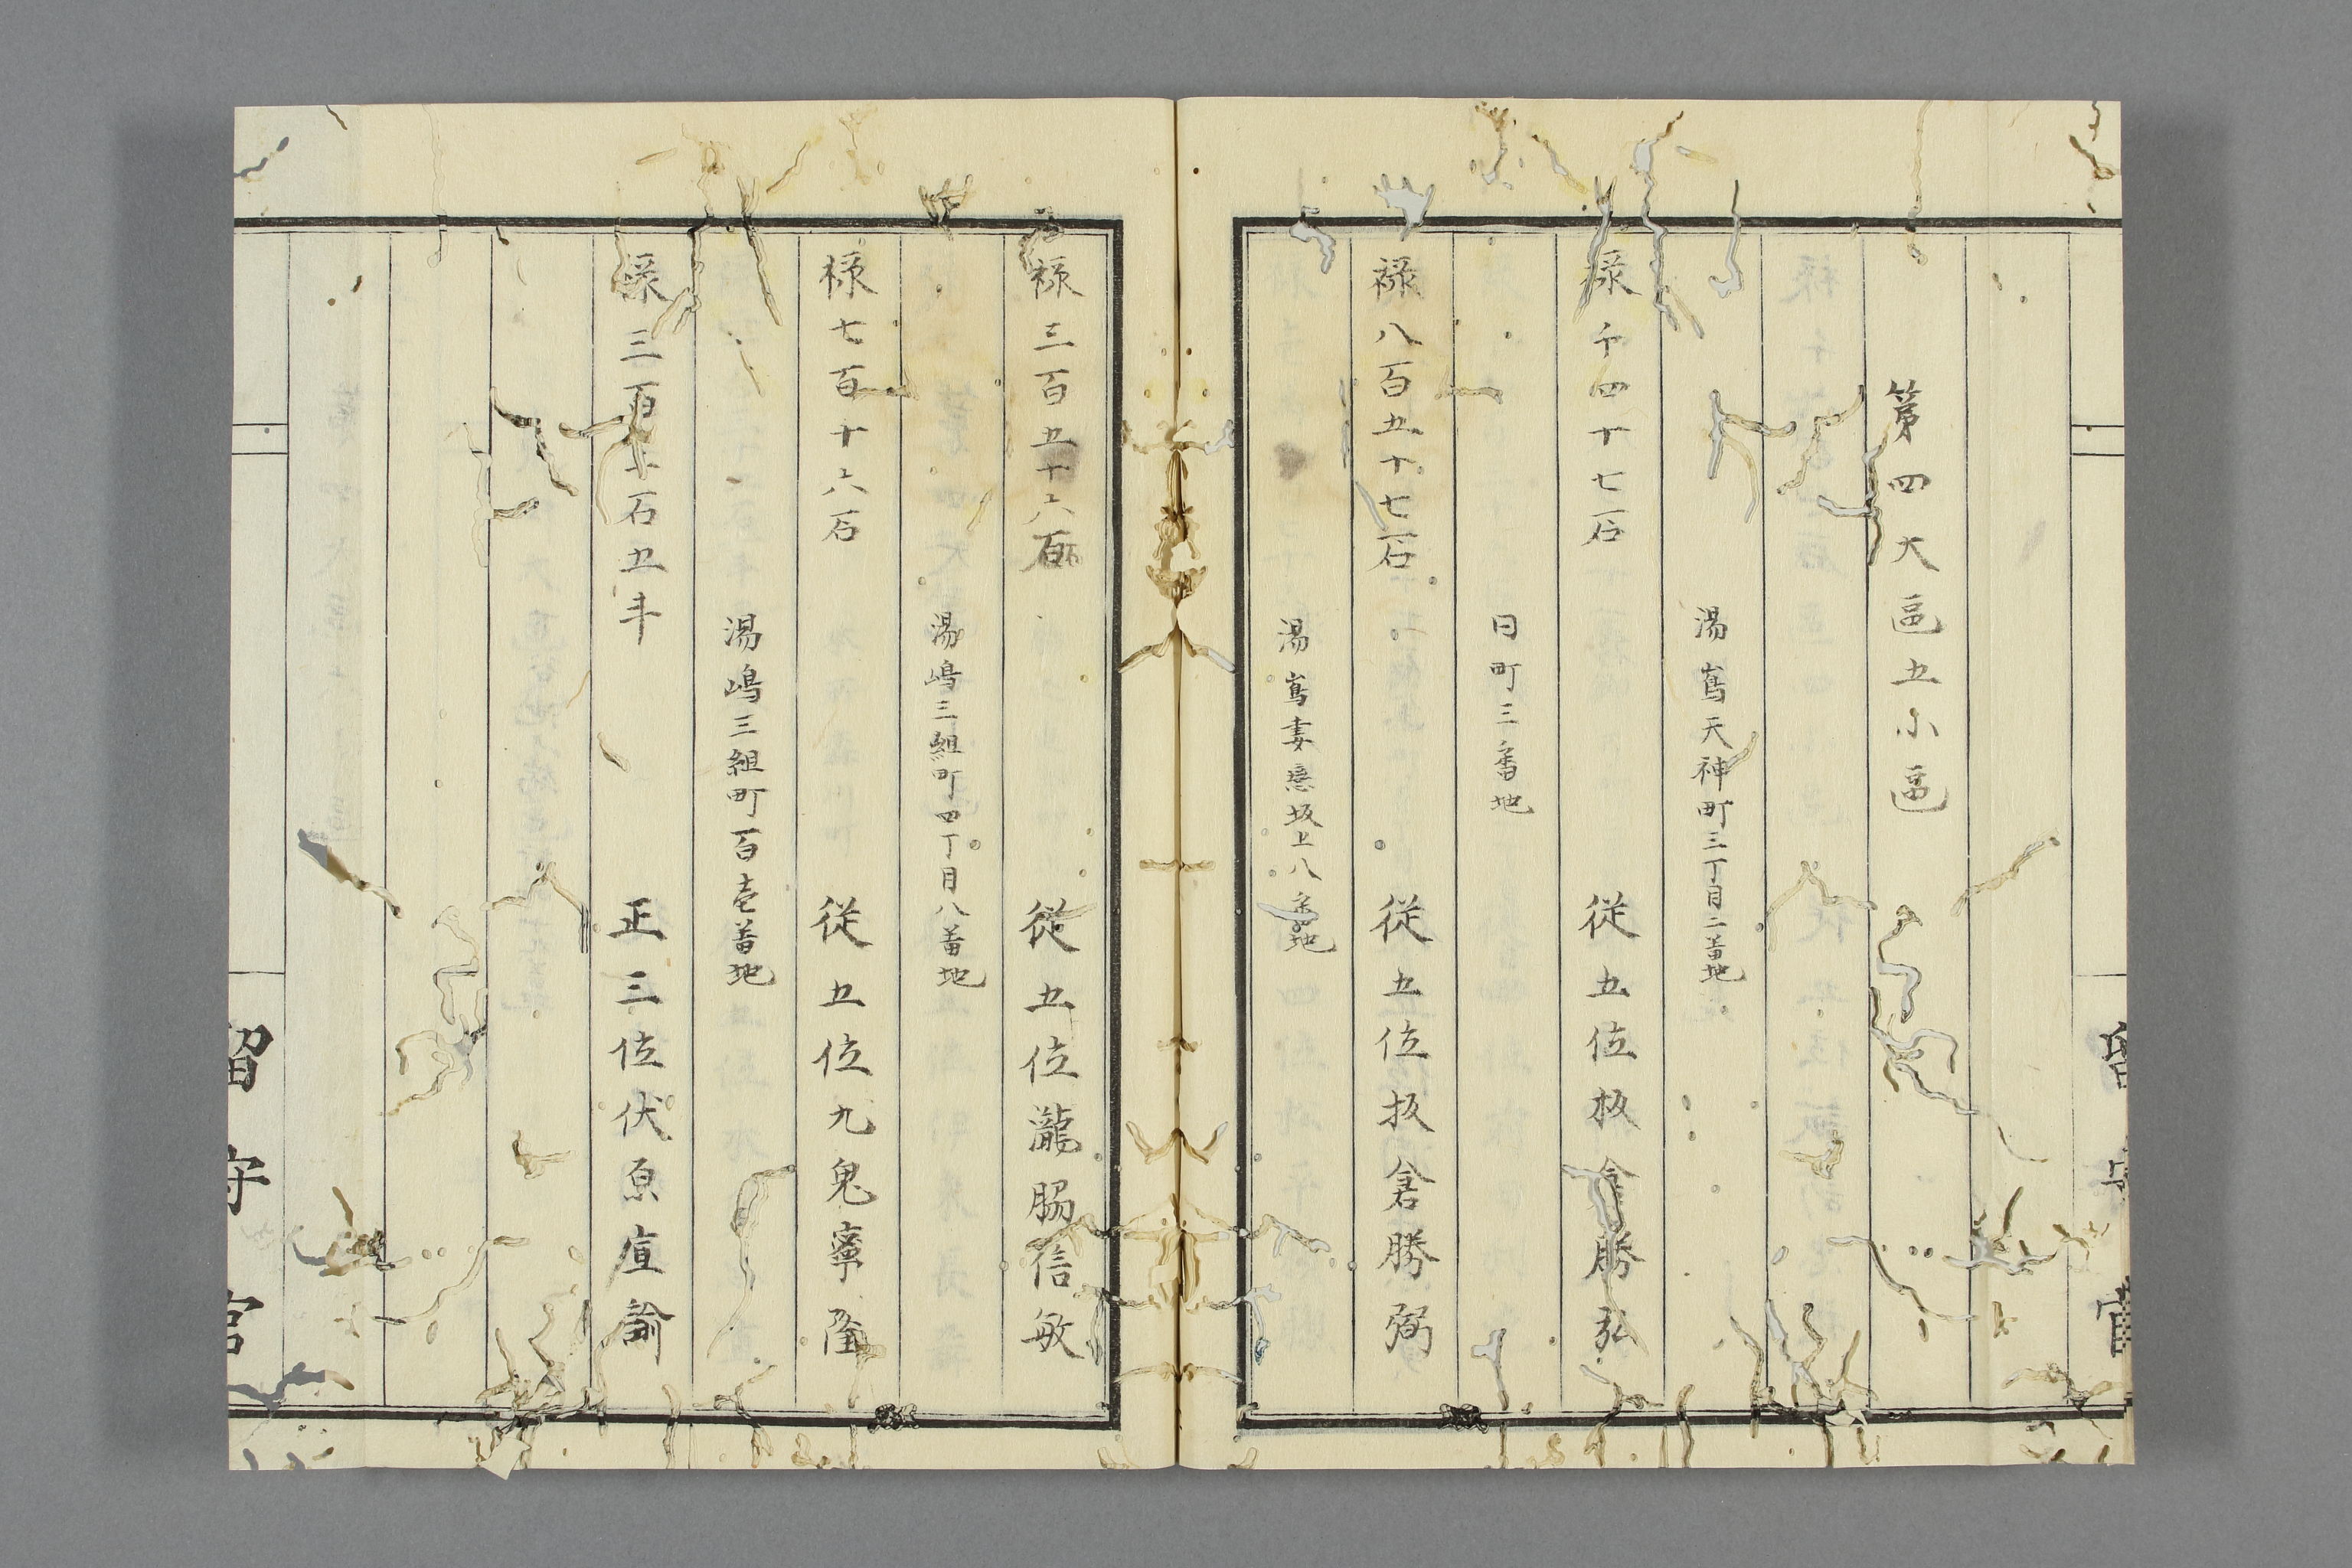 第四大區五小區
湯嶌天神町三丁目二番地
禄千四十七石 従五位板倉勝弘
同町三番地
禄八百五十七石 従五位板倉勝弼
湯嶌妻恋坂上八番地
禄三百五十六石 従五位瀧脇信敏
湯嶋三組町四丁目八番地
禄七百十六石 従五位九鬼寧隆
湯嶋三組町百壱番地
禄三百十石五斗 正三位伏原宣諭
留守官